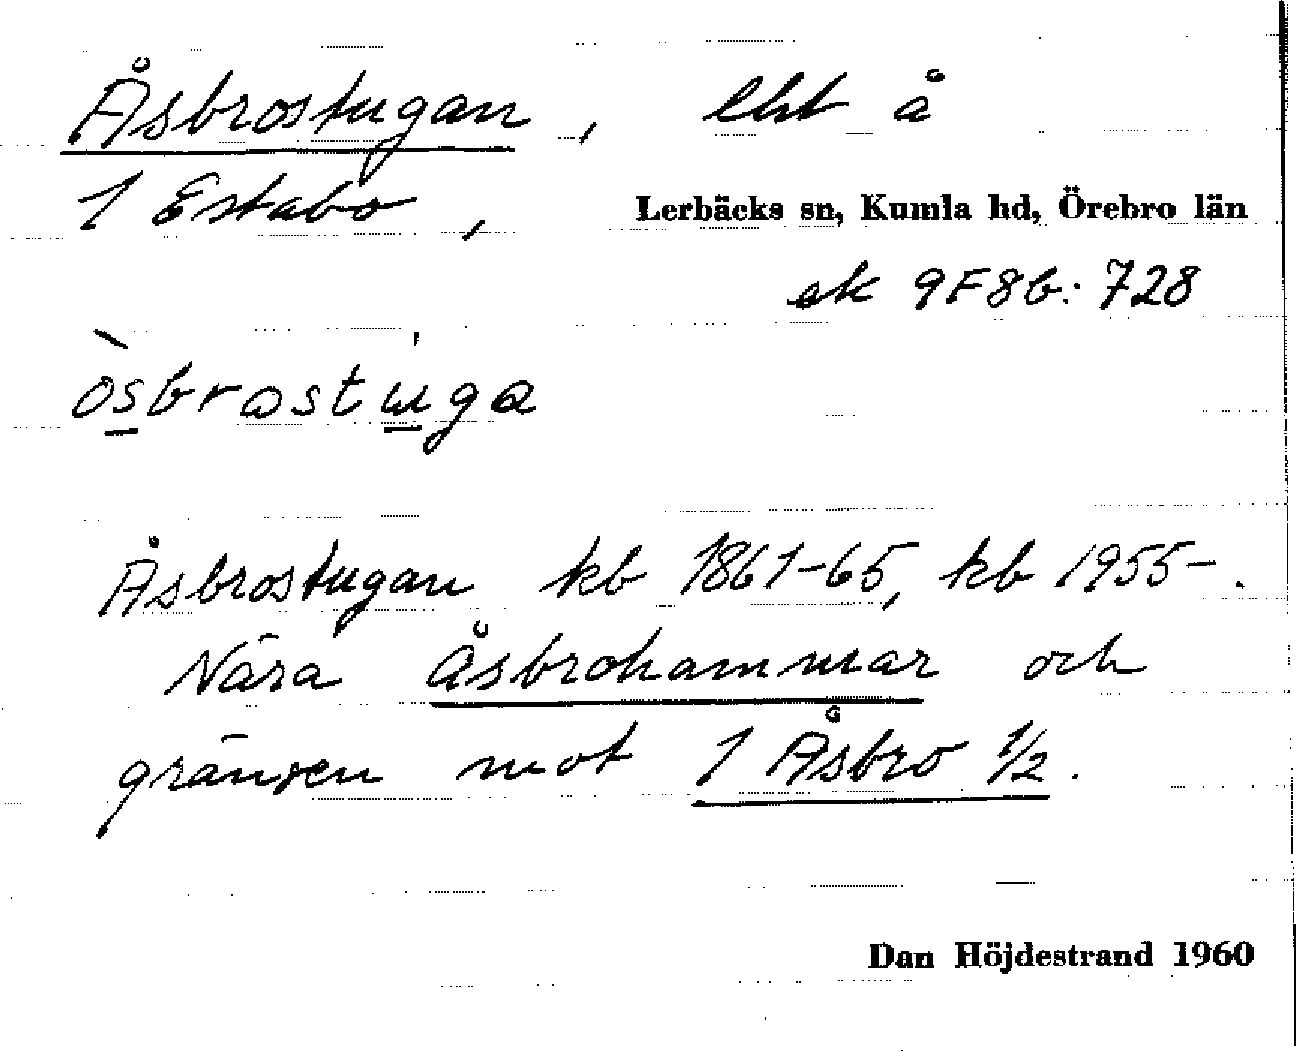 Åsbrostugan, lht å
1 Estabo, Lerbäcks sn, Kumla hd, Örebro län
ek 9F8b: 728
òsbrastu̇ga
Åsbrostugan kb 1861-65, kb 1955-.
Nära Åsbrohammar och
gränsen mot 1 Åsbro 1/2.
Dan Höjdestrand 1960